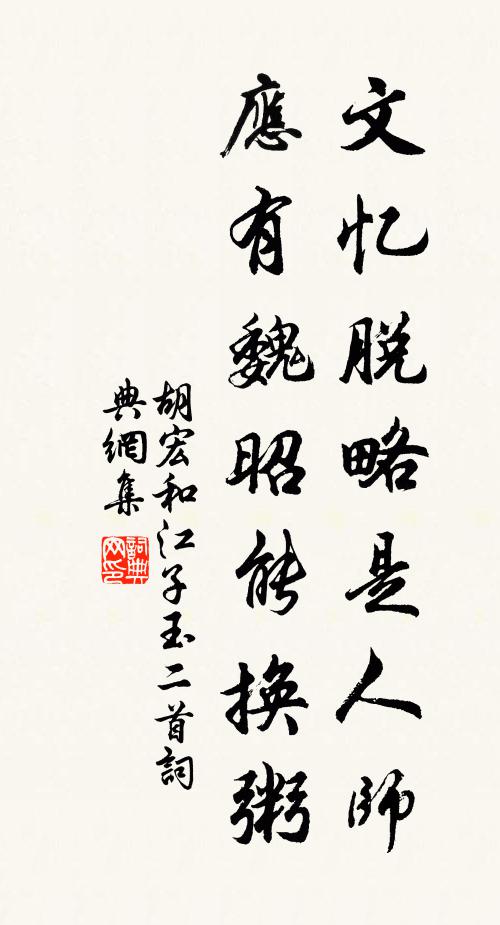 文忆脱略是人師
應有魏昭能換粥
胡宏和江子玉二首詞
典網集
詞典网印